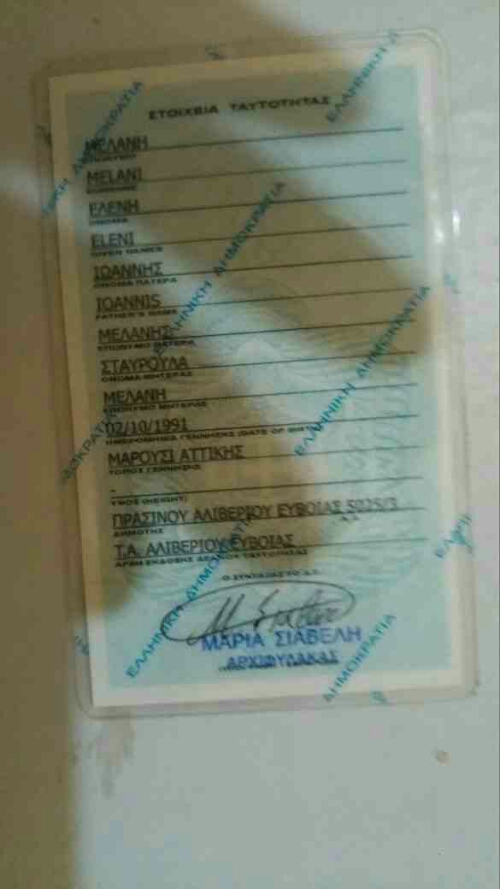 ΣΤΟΙΧΕΙΑ ΤΑΥΤΟΤΗΤΑΣ
ΜΕΛΑΝΗ
ΕΠΩΝΥΜΟ
MELANI
SURNAME
ΕΛΕΝΗ
ΟΝΟΜΑ
ELENI
GIVEN NAMES
ΙΩΑΝΝΗΣ
ΟΝΟΜΑ ΠΑΤΕΡΑ
IOANNIS
FATHER'S NAME
ΜΕΛΑΝΗΣ
ΕΠΩΝΥΜΟ ΠΑΤΕΡΑ
ΣΤΑΥΡΟΥΛΑ
ΟΝΟΜΑ ΜΗΤΕΡΑΣ
ΜΕΛΑΝΗ
ΕΠΩΝΥΜΟ ΜΗΤΕΡΑΣ
02/10/1991
ΗΜΕΡΟΜΗΝΙΑ ΓΕΝΝΗΣΗΣ (DATE OF BIRTH)
ΜΑΡΟΥΣΙ ΑΤΤΙΚΗΣ
ΤΟΠΟΣ ΓΕΝΝΗΣΗΣ
-
ΥΨΟΣ (HEIGHT)
ΠΡΑΣΙΝΟΥ ΑΛΙΒΕΡΙΟΥ ΕΥΒΟΙΑΣ 5025/3
ΔΗΜΟΤΗΣ
Τ.Α. ΑΛΙΒΕΡΙΟΥ ΕΥΒΟΙΑΣ
ΑΡΧΗ ΕΚΔΟΣΗΣ ΔΕΛΤΙΟΥ ΤΑΥΤΟΤΗΤΑΣ
Ο ΣΥΝΤΑΞΑΣ ΤΟ Δ.Τ.
ΜΑΡΙΑ ΣΙΑΒΕΛΗ
ΑΡΧΙΦΥΛΑΚΑΣ
ΕΛΛΗΝΙΚΗ ΔΗΜΟΚΡΑΤΙΑ
ΕΛΛΗΝΙΚΗ ΔΗΜΟΚΡΑΤΙΑ
ΕΛΛΗΝΙΚΗ ΔΗΜΟΚΡΑΤΙΑ